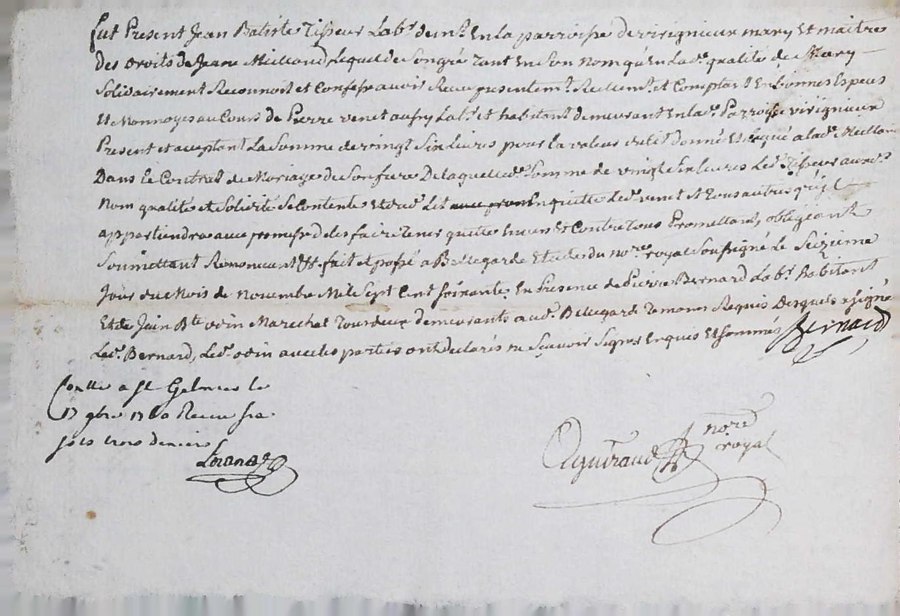 fut Present Jean Batiste Tisseur Labr. demt. En la parroisse de virignieux mary Et maitre
des droits de Jeane Lequel de Son gré tant En Son nom qu'En lade. qualité de Mary
Solidairement Reconnoit et Confesse avoir Receu presentemt. Reelemt. et Comptant En bonnes Espeus
Et Monnoyes au Cours de Pierre venet aussy Labr. et habitant demeurant En lade. Parroisse virignieux
Present et aceptant La Somme de vingt Six Livres pour la valeur du lit donné Et legué a lade.
Dans le Contrat de Mariage de Son frere De laquelle de. Somme de vingt Six livres Led. Tisseur aud.
Nom qualité et Solidité Se Contente Et en quitte Led. venet Et tous autres qu'il
appartiendra avec promesse de les faire tenir quitte Envers Et Contre tous Promettant, obligeant
Soumettant Renonceant &. fait et passé a Bellegarde Etude du nore. royal Soussigné le Seizieme
Jour du Mois de Novembre Mil Sept Cent Soixante, En Presence de Pierre Bernard Labr. habitant
Et de Jean Bte. odin Marechal demeurants aud. Bellegarde temoins Requis Desquels a signé
Led. Bernard, Led. odin avec les parties ont declarés ne Sçavoir Signer Enquis Et Sommés
Bernard
Conllé a St Gelmier le
17 9bre 1760 Receu
sols trois deniers
nore.
royal